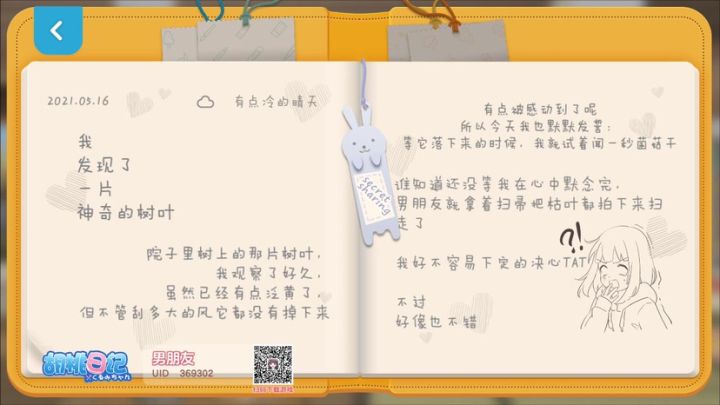 2021.05.16
有点冷的晴天
我
发现了
一片
神奇的树叶
院子里树上的那片树叶，
我观察了好久，
虽然已经有点泛黄了，
但不管刮多大的风它都没有掉下来
有点被感动到了呢
所以今天我也默默发誓：
等它落下来的时候，我就试着闻一秒菌菇干
谁知道还没等我在心中默念完，
男朋友就拿着扫帚把枯叶都拍下来扫
走了
我好不容易下定的决心TAT
不过
好像也不错
secret
sharing
?!
胡桃日记
くるみちゃん
男朋友
UID 369302
扫码下载游戏